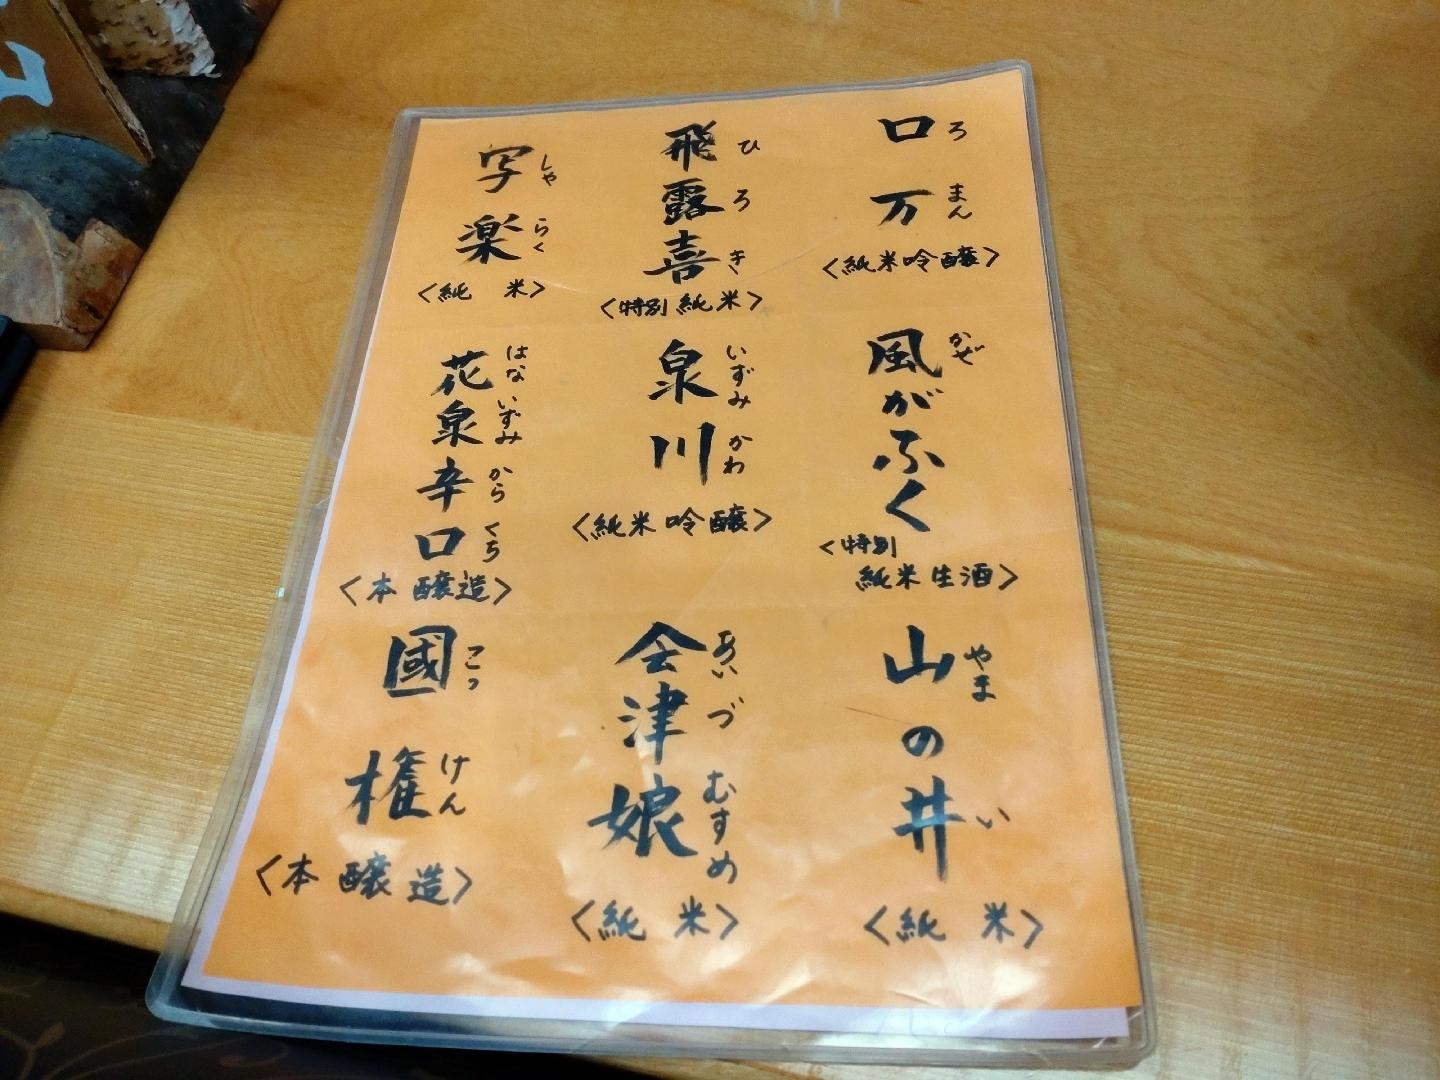 ロ万
ろまん
<純米吟醸>
飛露喜
ひろき
<特別純米>
写楽
しゃらく
<純米>
風がふく
かぜ
<特別
純米生酒>
泉川
いずみかわ
<純米吟醸>
花泉辛口
はないずみからくち
<本醸造>
山の井
やまい
<純米>
会津娘
あいづむすめ
<純米>
國権
こっけん
<本醸造>